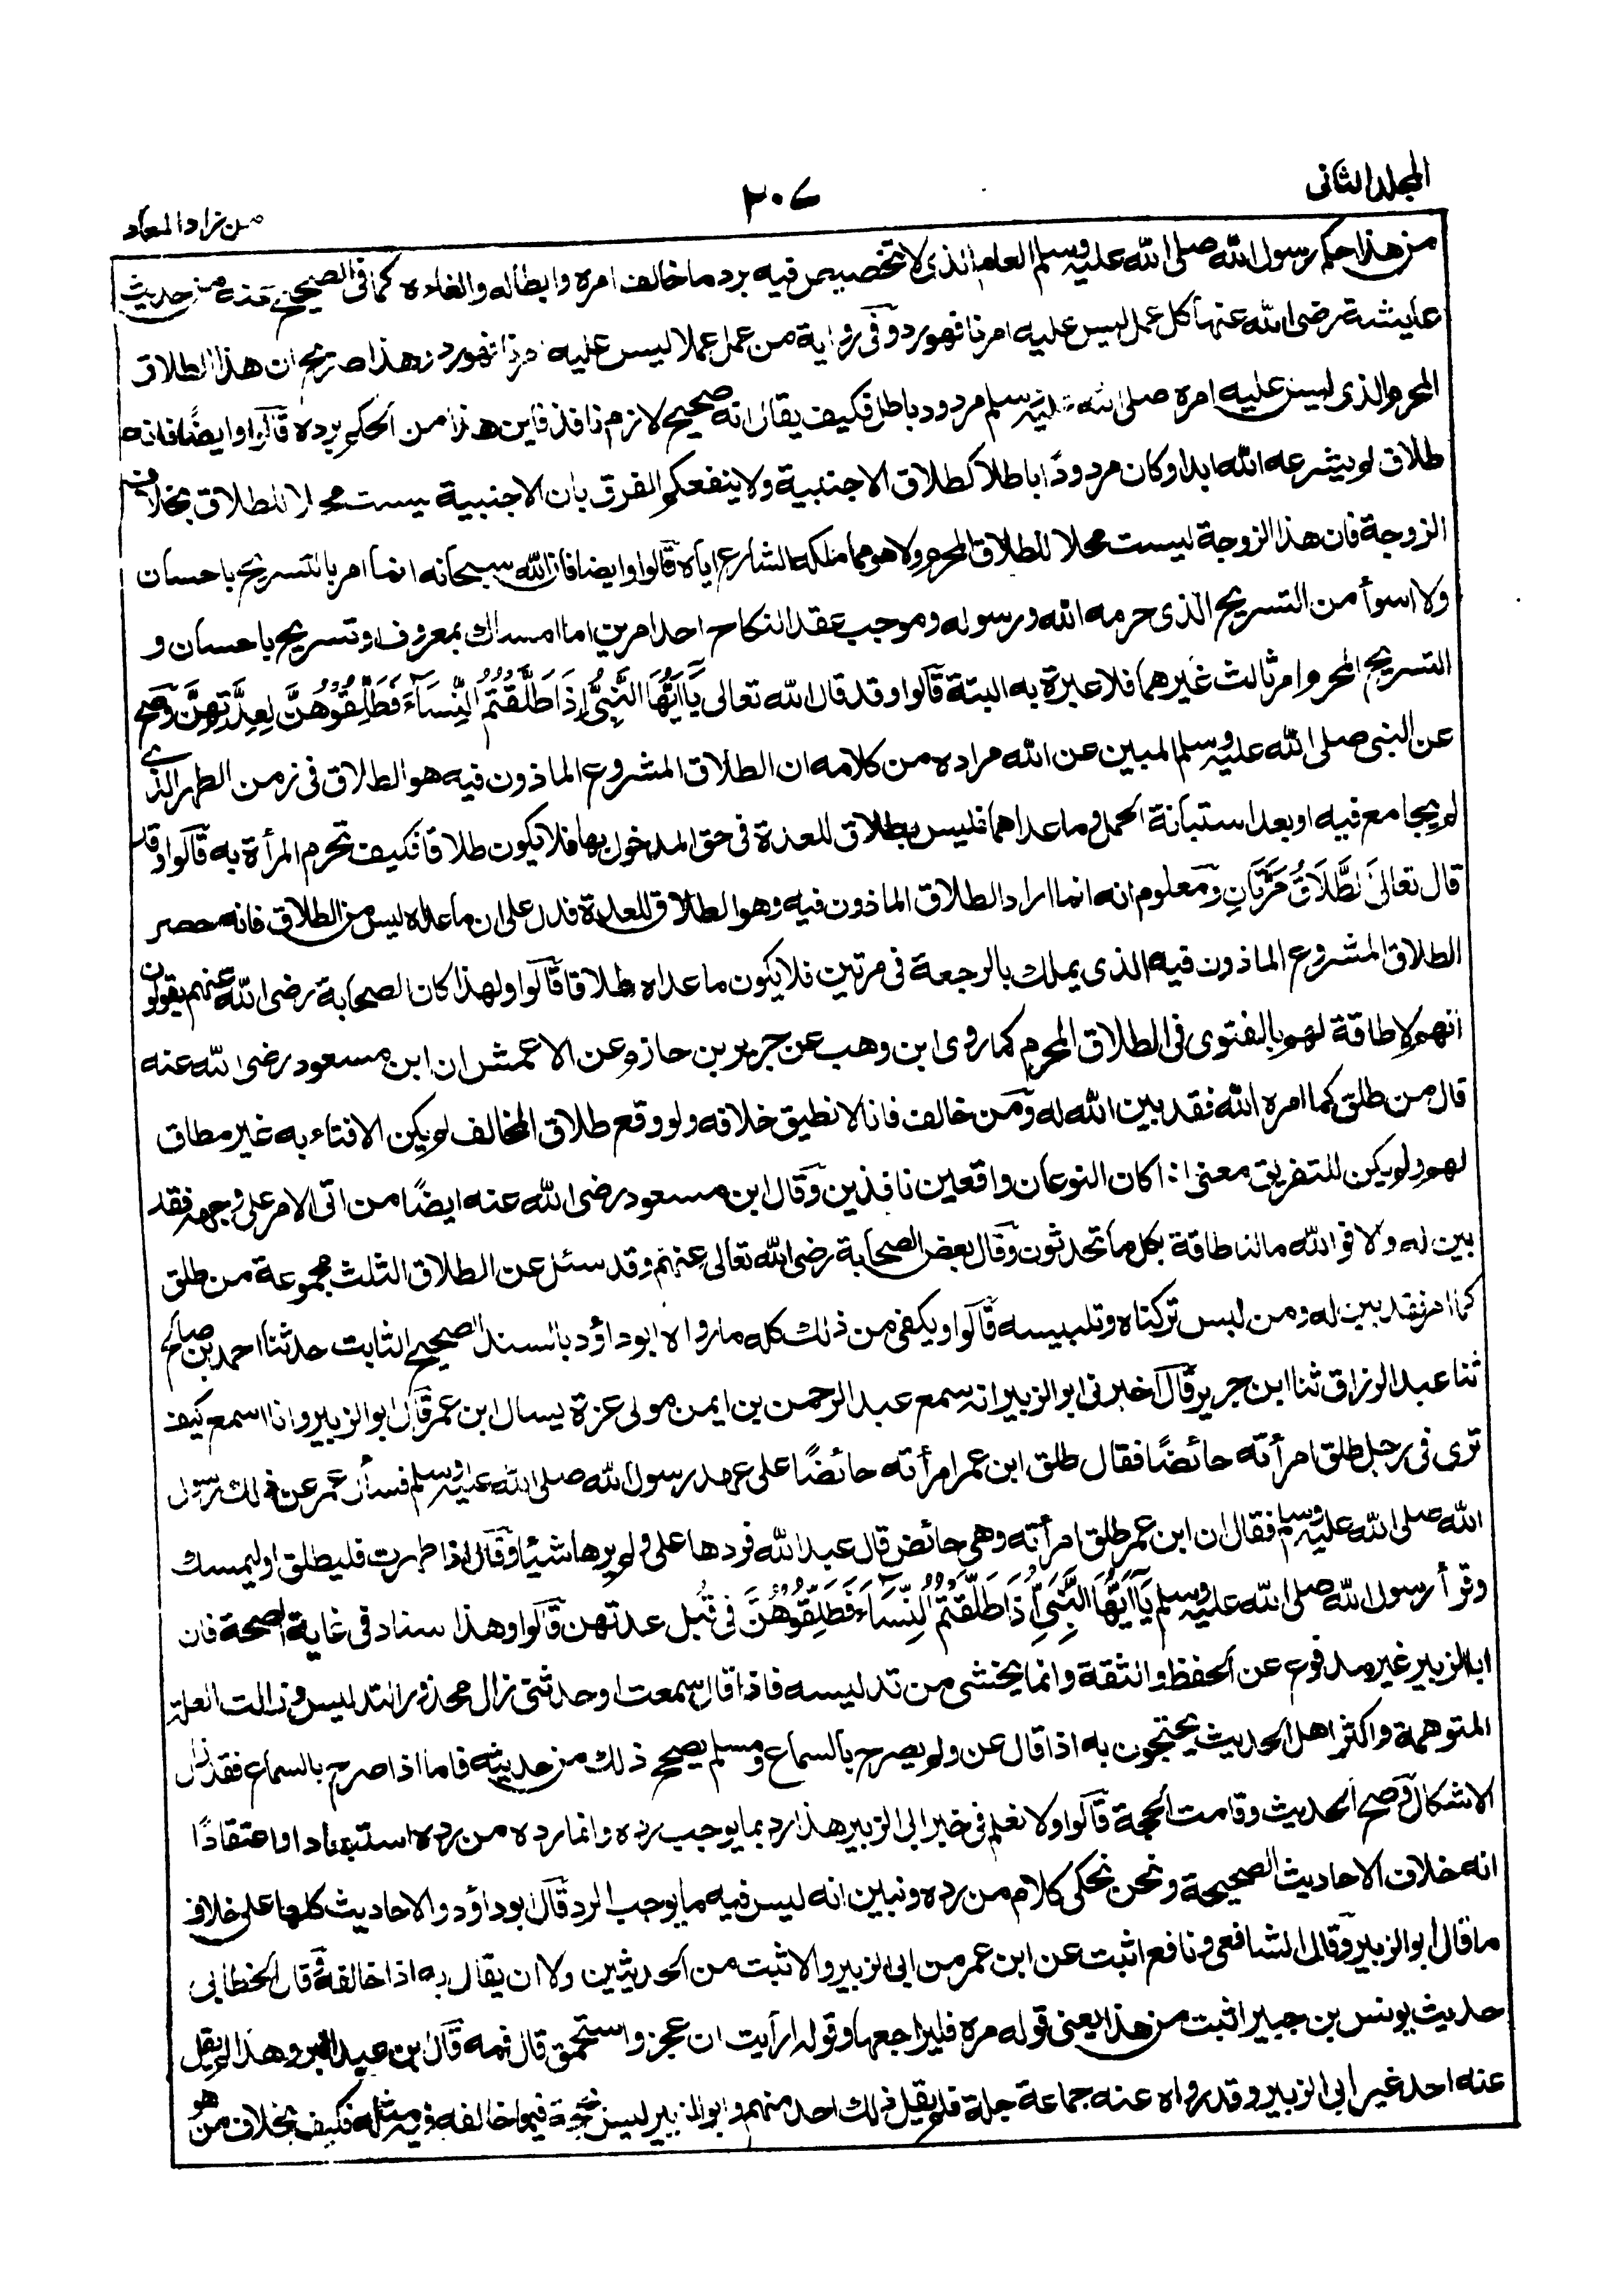 المجلد الثانى
٢٠٧
من زاد المعاد
من هذا حكم رسول الله صلى الله عليه وسلم العام الذى لا تخصيص فيه برد ما خالف امره وابطاله والغاءه كما فى الصحيح عنه من حديث
عايشة رضى الله عنها كل عمل ليس عليه امرنا فهو رد وفى رواية من عمل عملا ليس عليه امرنا فهو رد وهذا صريح ان هذا الطلاق
المحرم الذى ليس عليه امره صلى الله عليه وسلم مردود باطل فكيف يقال انه صحيح لازم نافذ فاين هذا من الحكم برده قالوا وايضًا فانه
طلاق لم يشرعه الله ابدا وكان مردودًا باطلا كطلاق الاجنبية ولا ينفعكم الفرق بان الاجنبية ليست محلا للطلاق بخلاف
الزوجة فان هذا الزوجة ليست محلا للطلاق المحرم ولا هو مما ملكه الشارع اياه قالوا وايضا فان الله سبحانه انما امر بالتسريح باحسان
ولا اسوأ من التسريح الذى حرمه الله ورسوله وموجب عقد النكاح احد امرين اما امساك بمعروف او تسريح باحسان و
التسريح المحرم امر ثالث غيرهما فلا عبرة به البتة قالوا وقد قال الله تعالى يَآ اَيُّهَا النَّبِىُّ اِذَا طَلَّقْتُمُ النِّسَآءَ فَطَلِّقُوْهُنَّ لِعِدَّتِهِنَّ وصح
عن النبى صلى الله عليه وسلم المبين عن الله مراده من كلامه ان الطلاق المشروع الماذون فيه هو الطلاق فى زمن الطهر الذى
لم يجامع فيه او بعد استبانة الحمل وما عداهما فليس بطلاق للعدة فى حق المدخول بها فلا يكون طلاقا فكيف تحرم المرأة به قالوا وقد
قال تعالى اَلطَّلَاقُ مَرَّتَانِ ومعلوم انه انما اراد الطلاق الماذون فيه وهو الطلاق للعدة فدل على ان ما عداه ليس من الطلاق فانه حصر
الطلاق المشروع الماذون فيه الذى يملك بالرجعة فى مرتين فلا يكون ما عداه طلاقا قالوا ولهذا كان الصحابة رضى الله عنهم يقولون
انهم لا طاقة لهم بالفتوى فى الطلاق المحرم كما روى ابن وهب عن جرير بن حازم عن الاعمش ان ابن مسعود رضى الله عنه
قال من طلق كما امره الله فقد بين الله له ومن خالف فانا لا نطيق خلافه ولو وقع طلاق المخالف لم يكن الافتاء به غير مطاق
لهم ولم يكن للتفريق معنى اذا كان النوعان واقعين نافذين وقال ابن مسعود رضى الله عنه ايضًا من اتى الامر على وجهه فقد
بين له والا فوالله مالنا طاقة بكل ما تحدثون وقال بعض الصحابة رضى الله تعالى عنهم وقد سئل عن الطلاق الثلث مجموعة من طلق
كما امر فقد بين له ومن لبس تركناه وتلبيسه قالوا ويكفى من ذلك كله ما رواه ابو داؤد بالسند الصحيح الثابت حدثنا احمد بن صالح
ثنا عبد الرزاق ثنا ابن جرير قال اخبرنى ابو الزبير انه سمع عبد الرحمن بن ايمن مولى عزة يسال ابن عمر قال ابو الزبير وانا اسمع كيف
ترى فى رجل طلق امرأته حائضًا فقال طلق ابن عمر امرأته حائضًا على عهد رسول الله صلى الله عليه وسلم فسأل عمر عن ذلك رسول
الله صلى الله عليه وسلم فقال ان ابن عمر طلق امرأته وهى حائض قال عبد الله فردها على ولم يرها شيئا وقال اذا طهرت فليطلق او ليمسك
وقرأ رسول الله صلى الله عليه وسلم يَآ اَيُّهَا النَّبِىُّ اِذَا طَلَّقْتُمُ النِّسَآءَ فَطَلِّقُوْهُنَّ فى قُبُل عدتهن قالوا وهذا اسناد فى غاية الصحة فان
ابا الزبير غير مدفوع عن الحفظ والثقة وانما يخشى من تدليسه فاذا قال سمعت او حدثنى زال محذور التدليس وزالت العلة
المتوهمة واكثر اهل الحديث يحتجون به اذا قال عن ولم يصرح بالسماع ومسلم يصحح ذلك من حديثه فاما اذا صرح بالسماع فقد زال
الاشكال وصح الحديث وقامت الحجة قالوا ولا نعلم فى خبر ابى الزبير هذا رد بما يوجب رده وانما رده من رده استبعادا او اعتقادًا
انه خلاف الاحاديث الصحيحة ونحن نحكى كلام من رده ونبين انه ليس فيه ما يوجب الرد قال ابو داؤد والاحاديث كلها على خلاف
ما قال ابو الزبير وقال الشافعى ونافع اثبت عن ابن عمر من ابى الزبير والاثبت من الحديثين ولا ان يقال به اذا خالفه وقال الخطابى
حديث يونس بن جبير اثبت من هذا يعنى قوله مره فليراجعها وقوله ارأيت ان عجز واستحمق قال فمه قال ابن عبد البر وهذا لم يقل
عنه احد غير ابى الزبير وقد رواه عنه جماعة جلة فلم يقل ذلك احد منهم وابو الزبير ليس حجة فيما خالفه فيه مثله فكيف بخلاف من هو